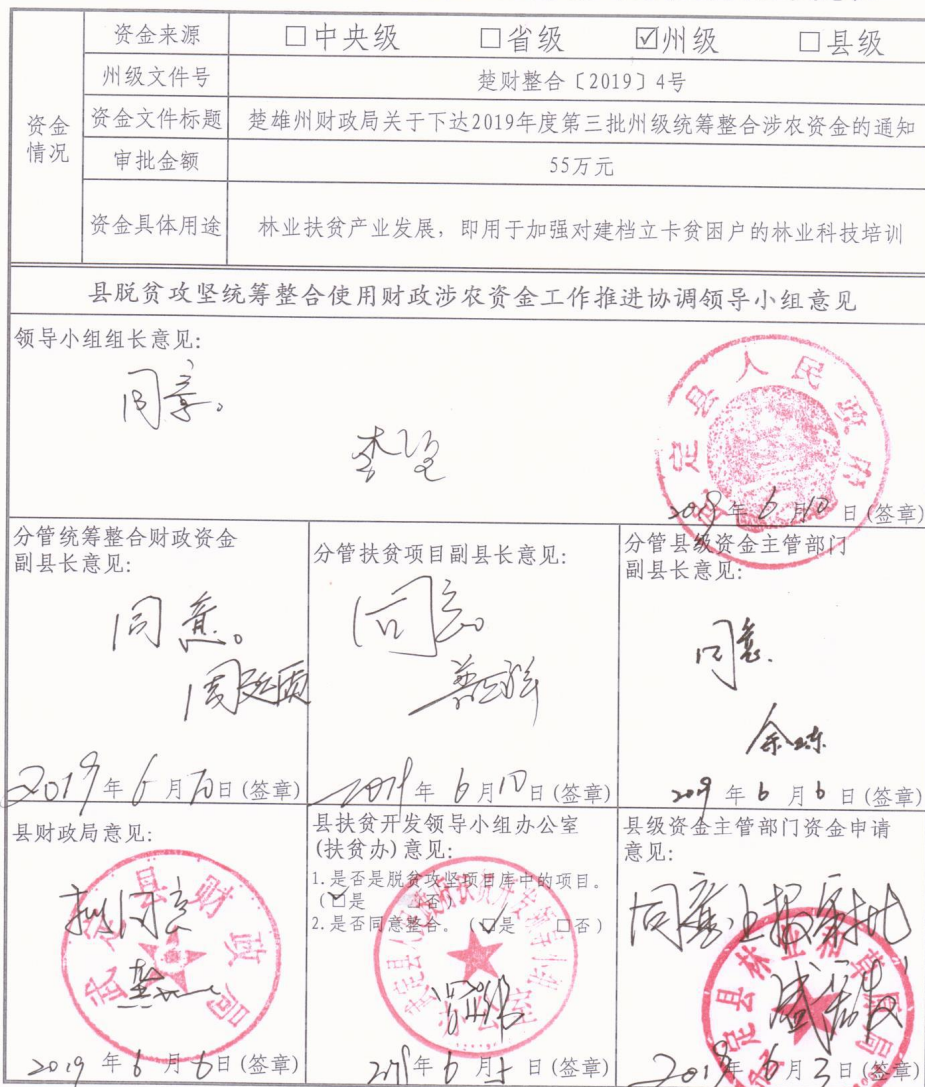 资金情况
资金来源 □中央级 □省级 ☑州级 □县级
州级文件号 楚财整合〔2019〕4号
资金文件标题 楚雄州财政局关于下达2019年度第三批州级统筹整合涉农资金的通知
审批金额 55万元
资金具体用途 林业扶贫产业发展，即用于加强对建档立卡贫困户的林业科技培训
县脱贫攻坚统筹整合使用财政涉农资金工作推进协调领导小组意见
领导小组组长意见:
同意。
武定县人民政府
2019年6月10日(签章)
分管统筹整合财政资金
副县长意见:
同意。
2019年6月10日(签章)
分管扶贫项目副县长意见:
同意
2019年6月10日(签章)
分管县级资金主管部门
副县长意见:
同意.
2019年6月6日(签章)
县财政局意见:
拟同意
武定县财政局
2019年6月6日(签章)
县扶贫开发领导小组办公室
(扶贫办)意见:
1.是否是脱贫攻坚项目库中的项目。
(☑是 □否)
2.是否同意整合。(☑是 □否)
2019年6月5日(签章)
县级资金主管部门资金申请
意见:
同意上报审批
武定县林业和草原局
2019年6月3日(签章)